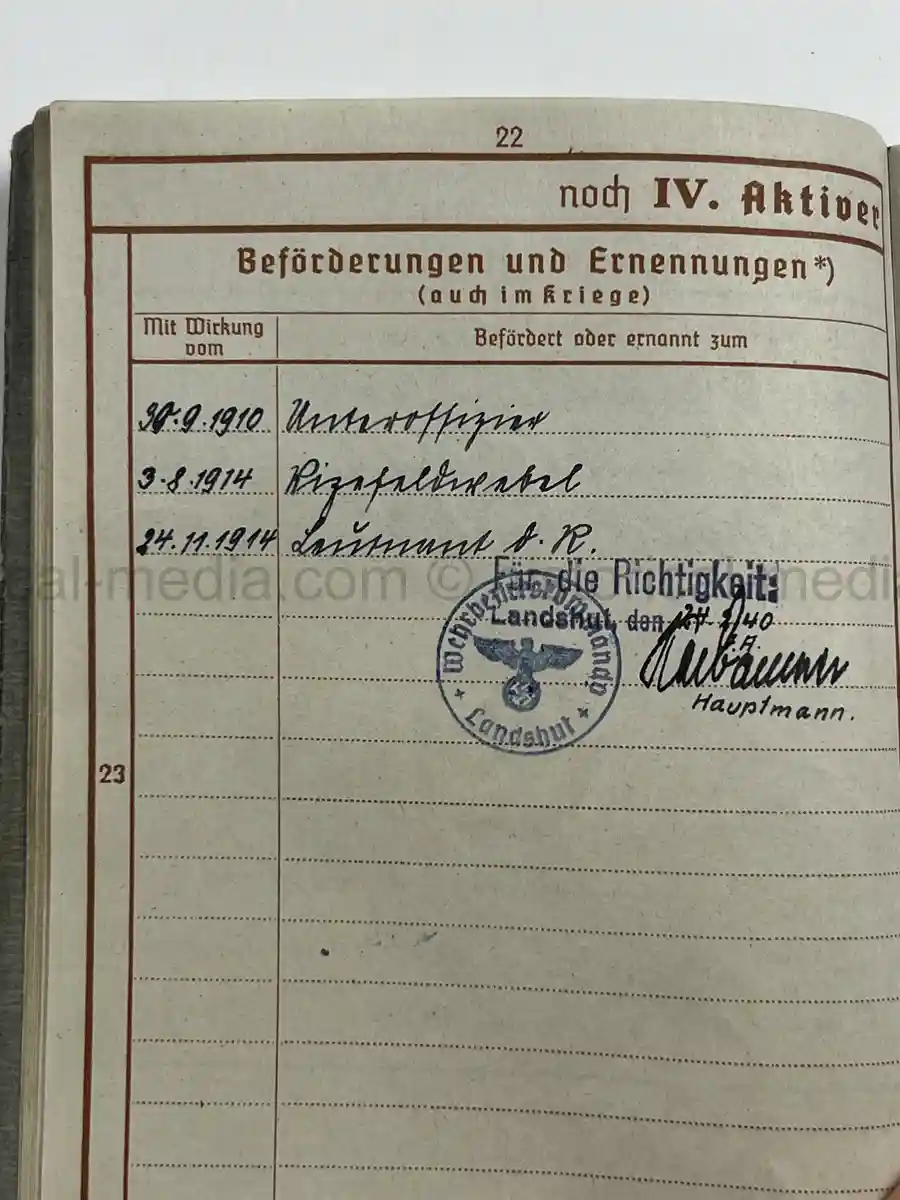 22
noch IV. Aktiver
Beförderungen und Ernennungen*)
(auch im Kriege)
Mit Wirkung vom
Befördert oder ernannt zum
30.9.1910 Unteroffizier
3.8.1914 Vizefeldwebel
24.11.1914 Leutnant d. R.
Für die Richtigkeit:
Landshut, den
Wehrbezirkskommando
Landshut
Hauptmann.
23
al-media.com ©